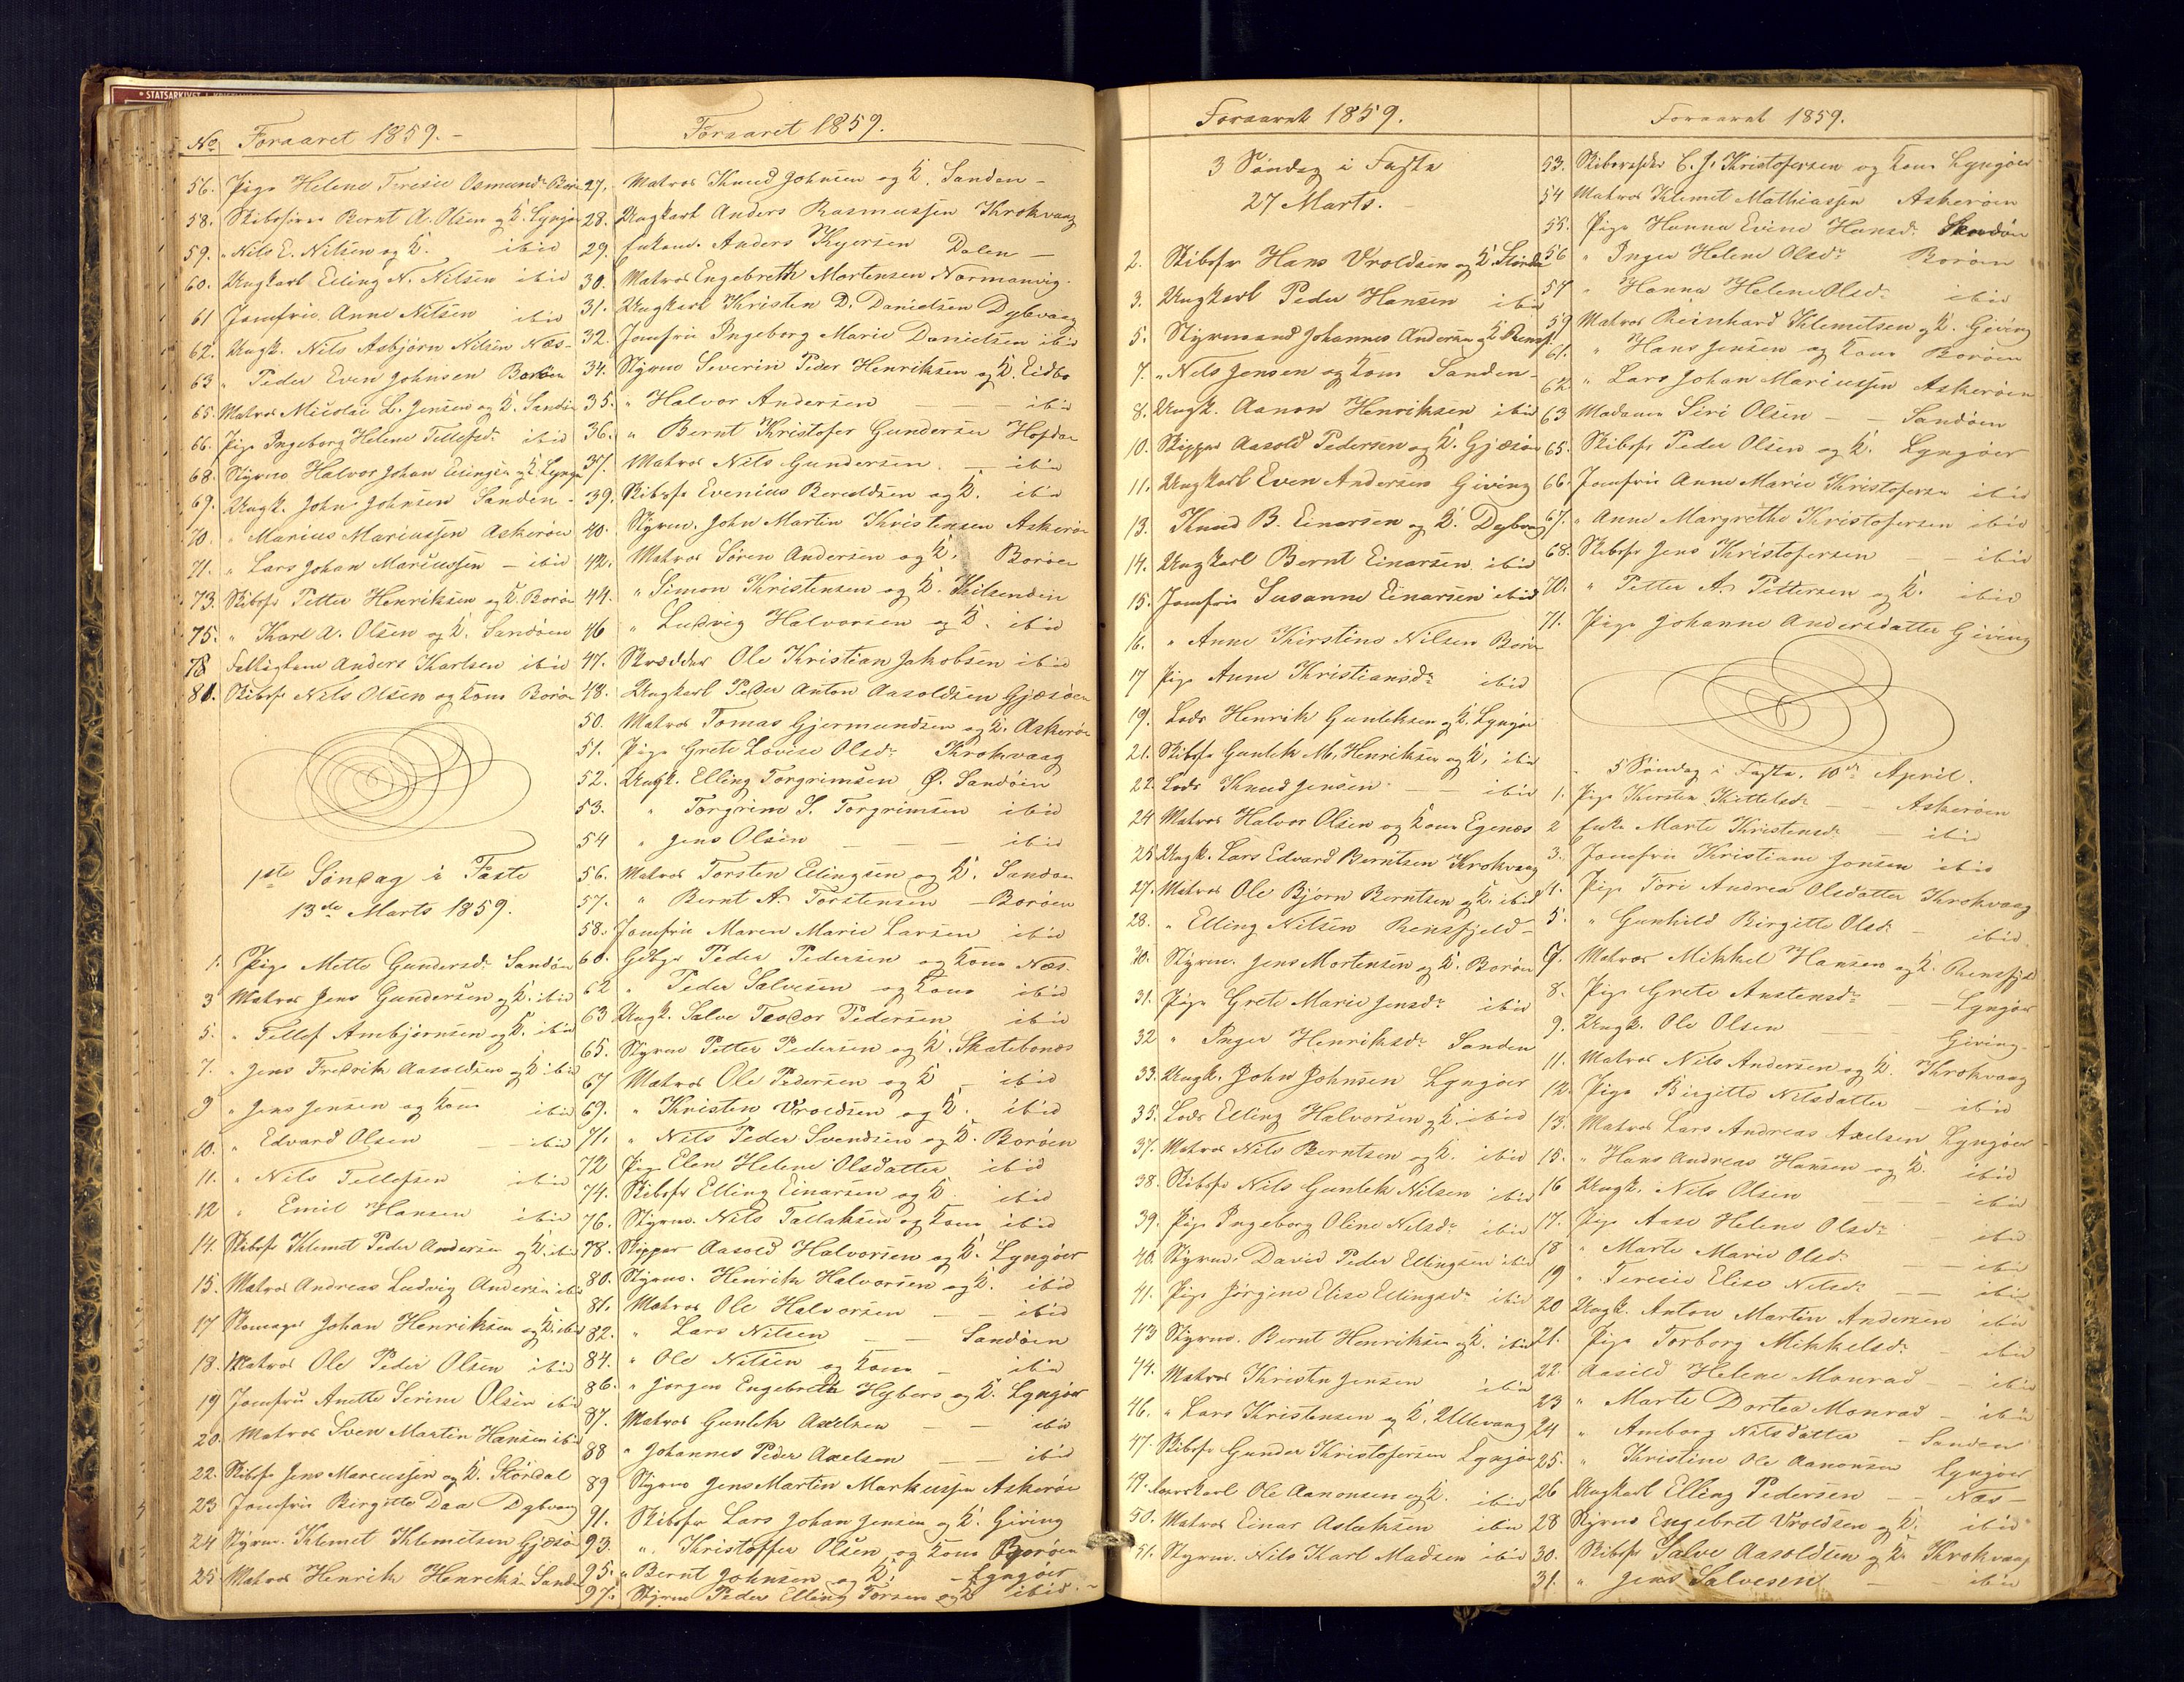 STATSARKIVET I
No. Foraaret 1859.-
56. Pige Helene Teresie Osmundsdr. Borøen
58. Skibsfører Bernt A. Olsen og K. Lyngøer
59. " Nils E. Nilsen og K. ibid
60. Ungkarl Elling N. Nilsen ibid
61 Jomfru Anne Nilsen ibid
62. Ungk. Nils Asbjørn Nilsen Næs-
63 " Peder Even Johnsen Borøen
65. Matros Nicolai L. Jensen og K. Sandøen
66. Pige Ingeborg Helene Tellefsdr. ibid
68. Styrm. Halvor Johan Ellingsen og K. Lyngør
69. Ungk. John Johnsen Sanden -
70. " Marius Mariussen Askerøen
71. " Lars Johan Mariussen - ibid
73. Skibsfr Petter Henriksen og K. Borøen
75. " Karl A. Olsen og K. Sandøen
78 Fattiglem Anders Karlsen ibid
81. Skibsfr Nils Olsen og Kone Borøe
1ste Søndag i Faste
13de Marts 1859.
1. Pige Mette Gundersdr. Sandøen
3 Matros Jens Gundersen og K. ibid
5. " Tellef Ambjørnsen og K. ibid
7. " Jens Fredrik Aasoldsen og K ibid
9 " Jens Jensen og Kone ibid
10. " Edvard Olsen - ibid
11. " Nils Tellefsen ibid
12 " Emil Hansen ibid
14. Skibsfr Klemet Peder Andersen og K. ibid
15. Matros Andreas Ludvig Andersen ibid
17 Skomager Johan Henriksen og K. ibid
18. Matros Ole Peder Olsen ibid
19 Jomfru Anette Serine Olsen ibid
20. Matros Sven Martin Hansen ibid
22. Skibsfr Jens Marcussen og K. Størdal
23 Jomfru Birgitte Daa Dybvaag
24 Styrm. Klemet Klemetsen Gjæsøen
25 Matros Henrik Henriksen Sanden
Foraaret 1859.
27. Matros Knud Johnsen og K. Sanden -
28. Ungkarl Anders Rasmussen Krokvaag
29. Enkem. Anders Kyersen Dalen -
30. Matros Engebreth Mortensen Normanvig.
31. Ungkarl Kristen D. Danielsen Dybvaag
32. Jomfru Ingeborg Marie Danielsen ibid
34. Styrm Severin Peder Henriksen og K. Eidbo
35. " Halvor Andersen - - ibid
36. " Bernt Kristofer Gundersen Hopdal
37. Matros Nils Gundersen - ibid
39. Skibsfr Evenius Bereldsen og K. ibid
40. Styrm. John Martin Kristensen Askerøen
42. Matros Søren Andersen og K. Borøen
44. " Simon Kristensen og K. Kilsenden
46 " Ludvig Halvorsen og K. ibid
47. Skrædder Ole Kristian Jakobsen ibid
48. Ungkarl Peder Anton Aasoldsen Gjæsøen
50. Matros Tomas Gjermundsen og K. Askerøen
51. Pige Grete Lovise Olsdr. Krokvaag
52. Ungk. Elling Torgrimsen Ø. Sandøen
53. " Torgrim S. Torgrimsen ibid
54 " Jens Olsen - - - ibid
56. Matros Torsten Ellingsen og K. Sandøen
57. " Bernt A. Torstensen - Borøen
58. Jomfru Maren Marie Larsen ibid
60. Gdbgr Peder Pedersen og Kone Næs.
62 " Peder Salvesen og Kone ibid
63 Ungk. Salve Teodor Pedersen ibid
65. Styrm Petter Pedersen og K. Skatebonæs
67 Matros Ole Pedersen og K - ibid
69. " Kristen Vroldsen og K. ibid
71. " Nils Peder Svendsen og K. Borøen
72 Pige Elen Helene Olsdatter ibid
74. Skibsfr Elling Einarsen og K. ibid
76. Styrm. Nils Tallaksen og Kone ibid
78. Skipper Aasold Halvorsen og K. Lyngøer
80. Styrm. Henrik Halvorsen og K. ibid
81. Matros Ole Halvorsen - - ibid
82. " Lars Nilsen - - Sandøen
84. " Ole Nilsen og Kone - ibid
86. " Jørgen Engebreth Hybers og K. Lyngøer
87. Matros Gunlek Axelsen - - ibid
88 " Johannes Peder Axelsen - - ibid
89 Styrm Jens Martin Markussen Askerøen
91. Skibsfr Lars Johan Jensen og K. Giving
93. " Kristoffer Olsen og Kone Borøen
95. " Bernt Johnsen og K. - Lyngøer
97. Styrm Peder Elling Torsen og K ibid. -
Foraaret 1859.
3 Søndag i Faste
27 Marts.
2. Skibsfr Hans Vroldsen og K. Størdal
3. Ungkarl Peder Hansen ibid
5. Styrmand Johannes Andersen og K. Rensf.
7. " Nils Jensen og Kone Sanden -
8. Ungk. Aanon Henriksen ibid
10. Skipper Aasold Pedersen og K. Gjæsøen
11. Ungkarl Even Andersen Giving
13. Knud B. Einarsen og K. Dybvaag
14. Ungkarl Bernt Einarsen ibid
15. Jomfru Susanne Einarsen ibid
16. " Anne Kirstine Nilsen Borøen
17 Pige Anne Kristiansdr. ibid
19. Lods Henrik Gunleksen og K. Lyngøer
21. Skibsfr Gunlek M. Henriksen og K. ibid
22. Lods Knud Jensen - - ibid
24 Matros Halvor Olsen og Kone Egenæs
25 Ungk. Lars Edvard Berntsen Krokvaag
27. Matros Ole Bjørn Berntsen og K. ibid
28. " Elling Nilsen Rensfjeld -
30. Styrm. Jens Mortensen og K. Borøen
31. Pige Grete Marie Jensdr. ibid
32 " Inger Henriksdr. Sanden
33. Ungk. John Johnsen Lyngøer
35. Lods Elling Halvorsen og K. ibid
37. Matros Nils Berntsen og K. ibid
38. Skibsfr Nils Gunlek Nilsen ibid
39. Pige Ingeborg Oline Nilsdr. ibid
40. Styrm. David Peder Ellingsen ibid
41. Pige Jørgine Elise Ellingsdr. ibid
43 Styrm. Bernt Henriksen og K. ibid
44. Matros Kristen Jensen ibid
46. " Lars Kristensen og K. Ullevaag
47. Skibsfr Gunder Kristofersen Lyngøer
49. Ole Aanonsen og K. ibid
50. Matros Einar Aslaksen ibid
51. Styrm. Nils Karl Madsen ibid
Foraaret 1859.
53. Skibsreder C. J. Kristofersen og Kone Lyngøer
54 Matros Klemet Mathiassen Askerøen
55. Pige Hanna Evine Hansdr. Sandøen
56 " Inger Helene Olsdr. Borøen
57 " Hanna Helene Olsdr. ibid
59 Matros Reinhard Klemetsen og K. Giving
61. " Hans Jensen og Kone Borøen
62. " Lars Johan Mariussen Askerøen
63 Madame Siri Olsen - - Sandøen
65. Skibsfr Peder Olsen og K. Lyngøer
66. Jomfru Anne Marie Kristofersen ibid
67. " Anne Margrethe Kristofersen ibid
68. Skibsfr Jens Kristofersen - - ibid
70. " Petter A. Pettersen og K. ibid
71. Pige Johanne Andersdatter Giving
5 Søndag i Faste, 10de April.
1. Pige Kirsten Kittelsdr. - - Askerøen
2 Enke Marte Kristensdr. - ibid
3. Jomfru Kristiane Jensen ibid
4. Pige Tore Andrea Olsdatter Krokvaag
5. " Gunhild Birgitte Olsdr. - ibid.
7. Matros Mikkel Hansen og K. Rensfjeld
8. Pige Grete Anstensdr. - Lyngøer
9. Ungk. Ole Olsen - - Giving-
11. Matros Nils Andersen og K. Krokvaag
12. Pige Birgitte Nilsdatter - ibid
13. Matros Lars Andreas Axelsen Lyngøer
15. " Hans Andreas Hansen og K. ibid
16 Ungk. Nils Olsen - - - ibid
17. Pige Aase Helene Olsdr. - ibid
18 " Marte Marie Olsdr. - - ibid
19 " Teresie Elise Nilsdr. - - ibid
20 Ungk. Anton Martin Andersen ibid
21. Pige Torborg Mikkelsdr. - ibid
22. Aasild Helene Monrad - - ibid
23 " Marte Dortea Monrad - ibid
24 " Amborg Nilsdatter - Sanden
25. " Kristine Ole Aanonsen Lyngøer
26 Ungkarl Elling Pedersen - - Næs -
28 Styrm Engebret Vroldsen og K. ibid
30. Skibsfr Salve Aasoldsen og K. Krokvaag
31. " Jens Salvesen - - ibid